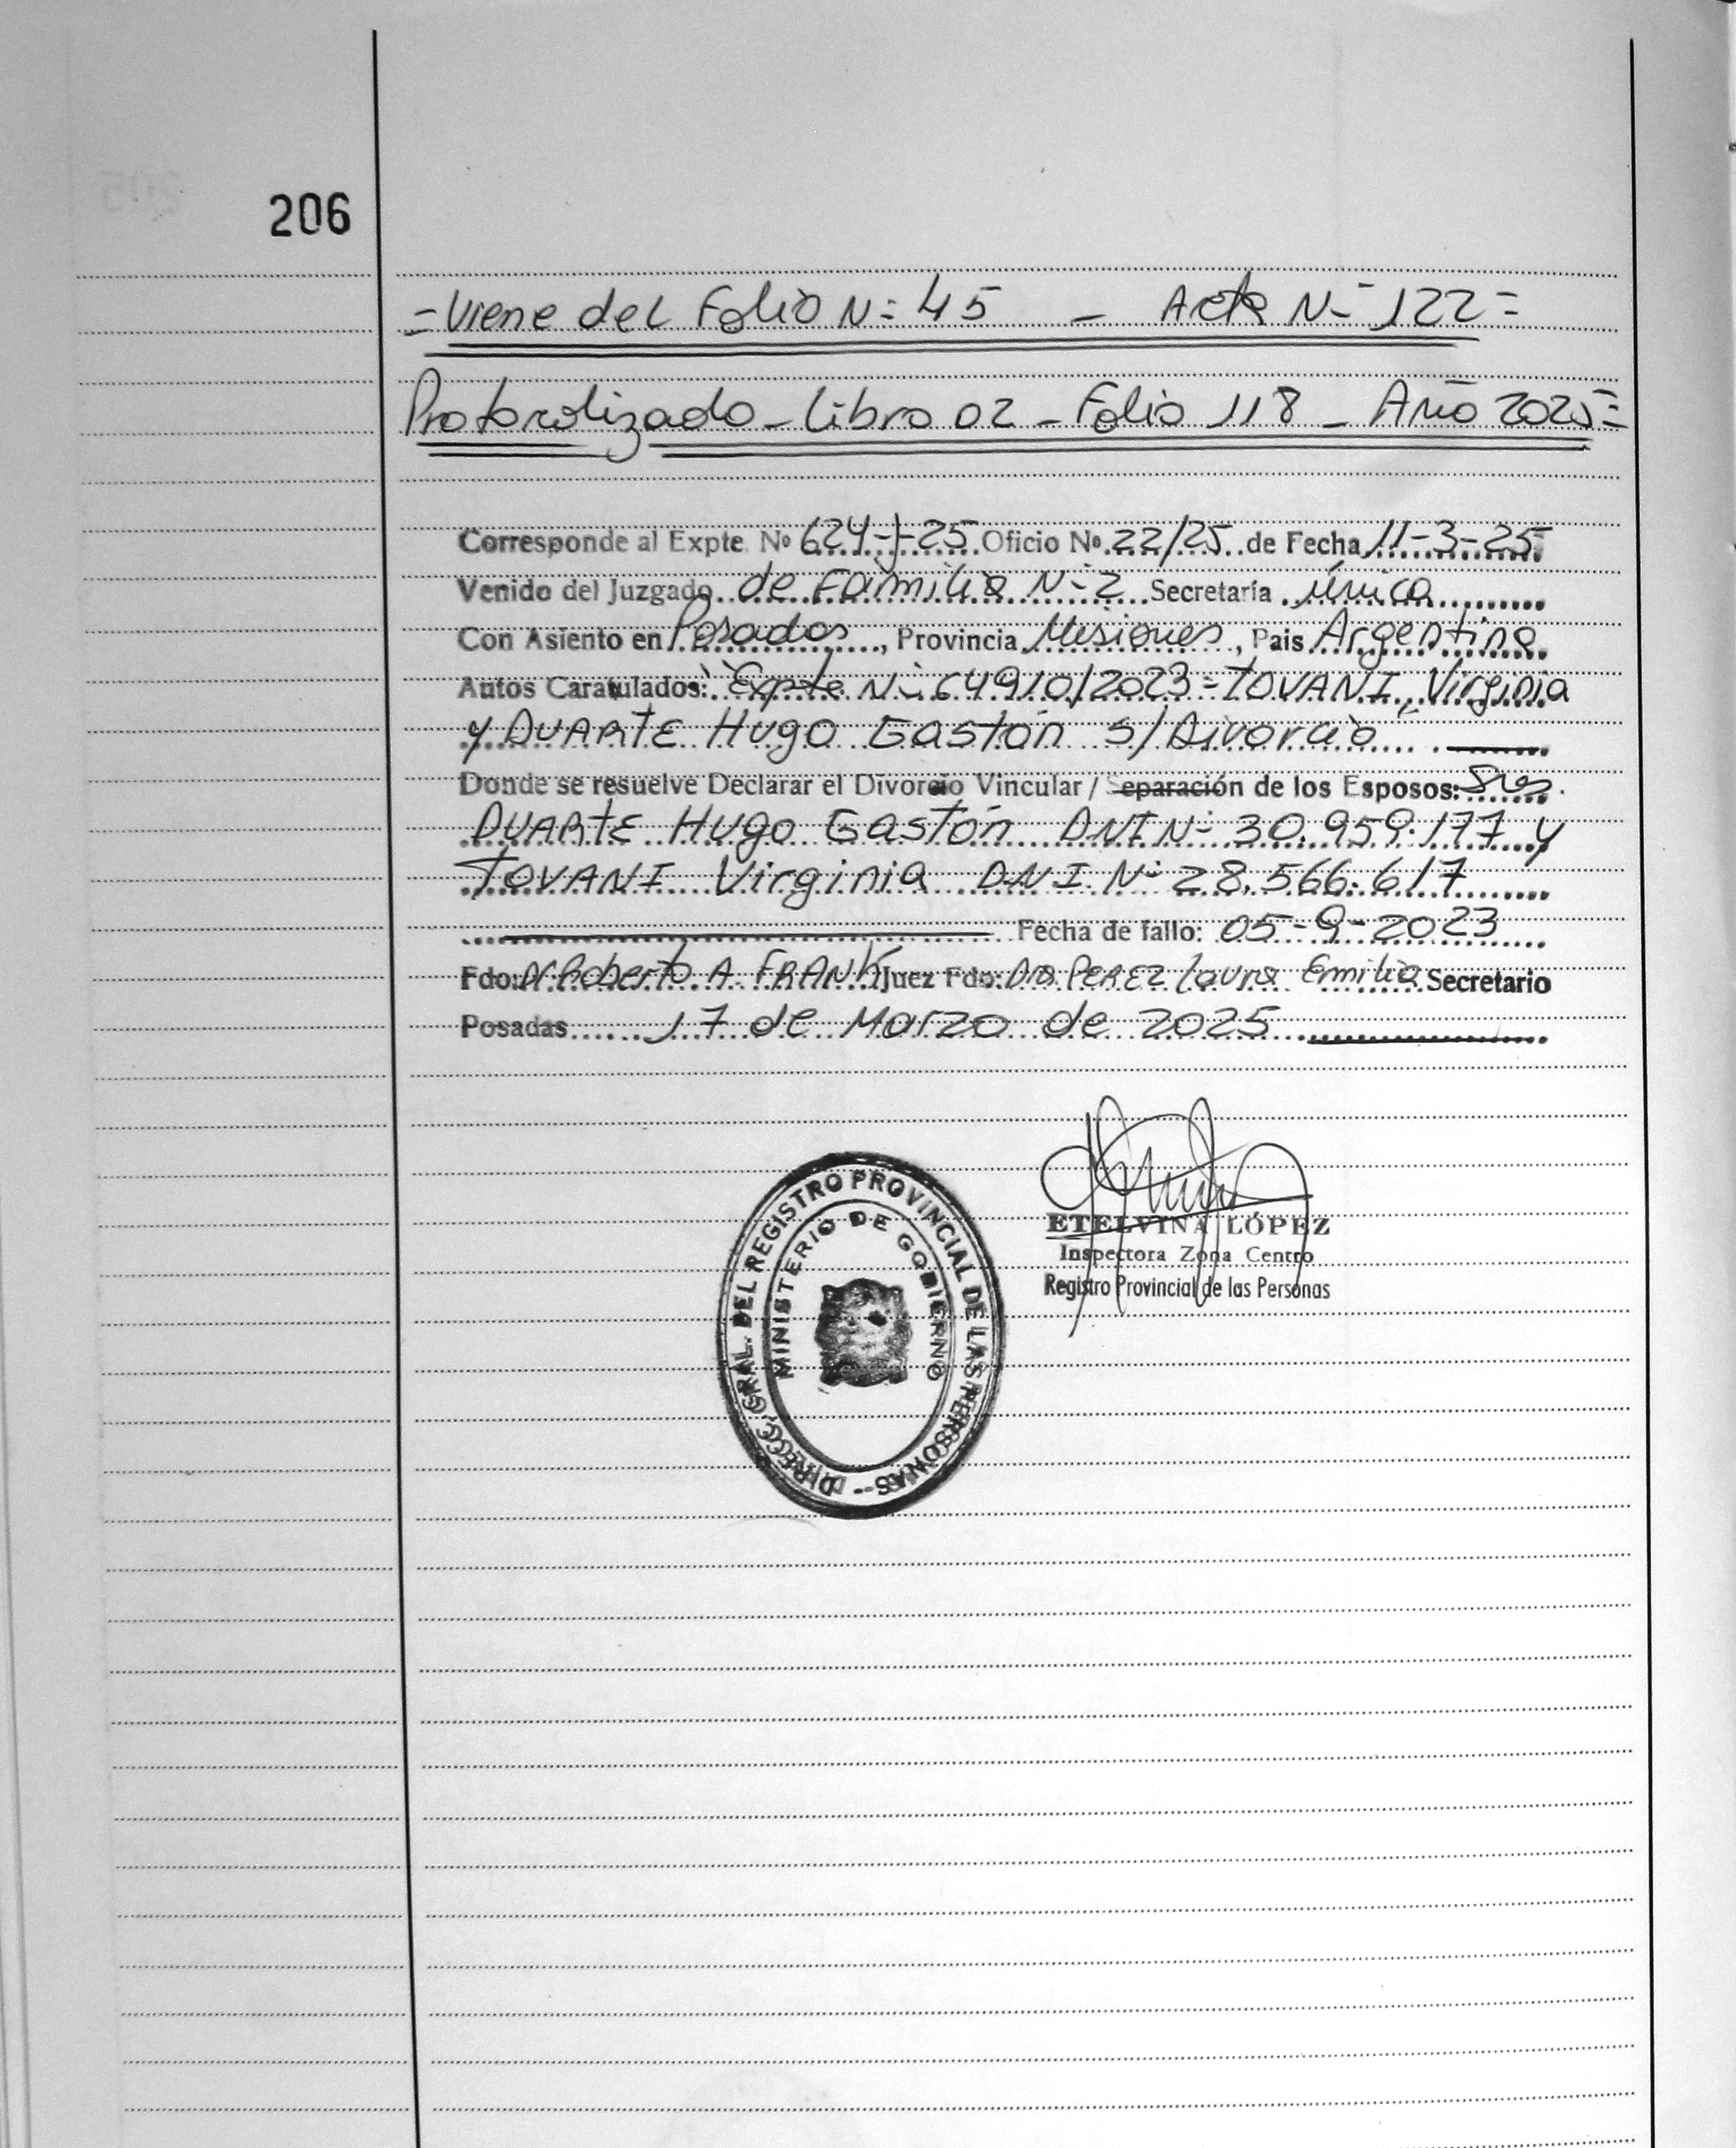 206
= Viene del Folio N= 45 - Acta N= 122 =
Protocolizado - Libro 02 - Folio 118 - Año 2025 =
Corresponde al Expte. Nº 624-J-25 Oficio Nº 22/25 de Fecha 11-3-25
Venido del Juzgado de Familia N= 2 Secretaría Única
Con Asiento en Posadas, Provincia Misiones, Pais Argentina
Autos Caratulados: "Expte N= 64910/2023 = TOVANI, Virginia
y DUARTE Hugo Gastón s/Divorcio"
Donde se resuelve Declarar el Divorcio Vincular / Separación de los Esposos: Sres.
DUARTE Hugo Gastón DNI N= 30.959.177 y
TOVANI Virginia DNI N= 28.566.617
Fecha de fallo: 05-9-2023
Fdo: Dr Roberto A. FRANK Juez Fdo: Dra PEREZ Laura Emilia Secretario
Posadas 17 de Marzo de 2025
ETELVINA LÓPEZ
Inspectora Zona Centro
Registro Provincial de las Personas
DIRECC. GRAL. DEL REGISTRO PROVINCIAL DE LAS PERSONAS --
MINISTERIO DE GOBIERNO